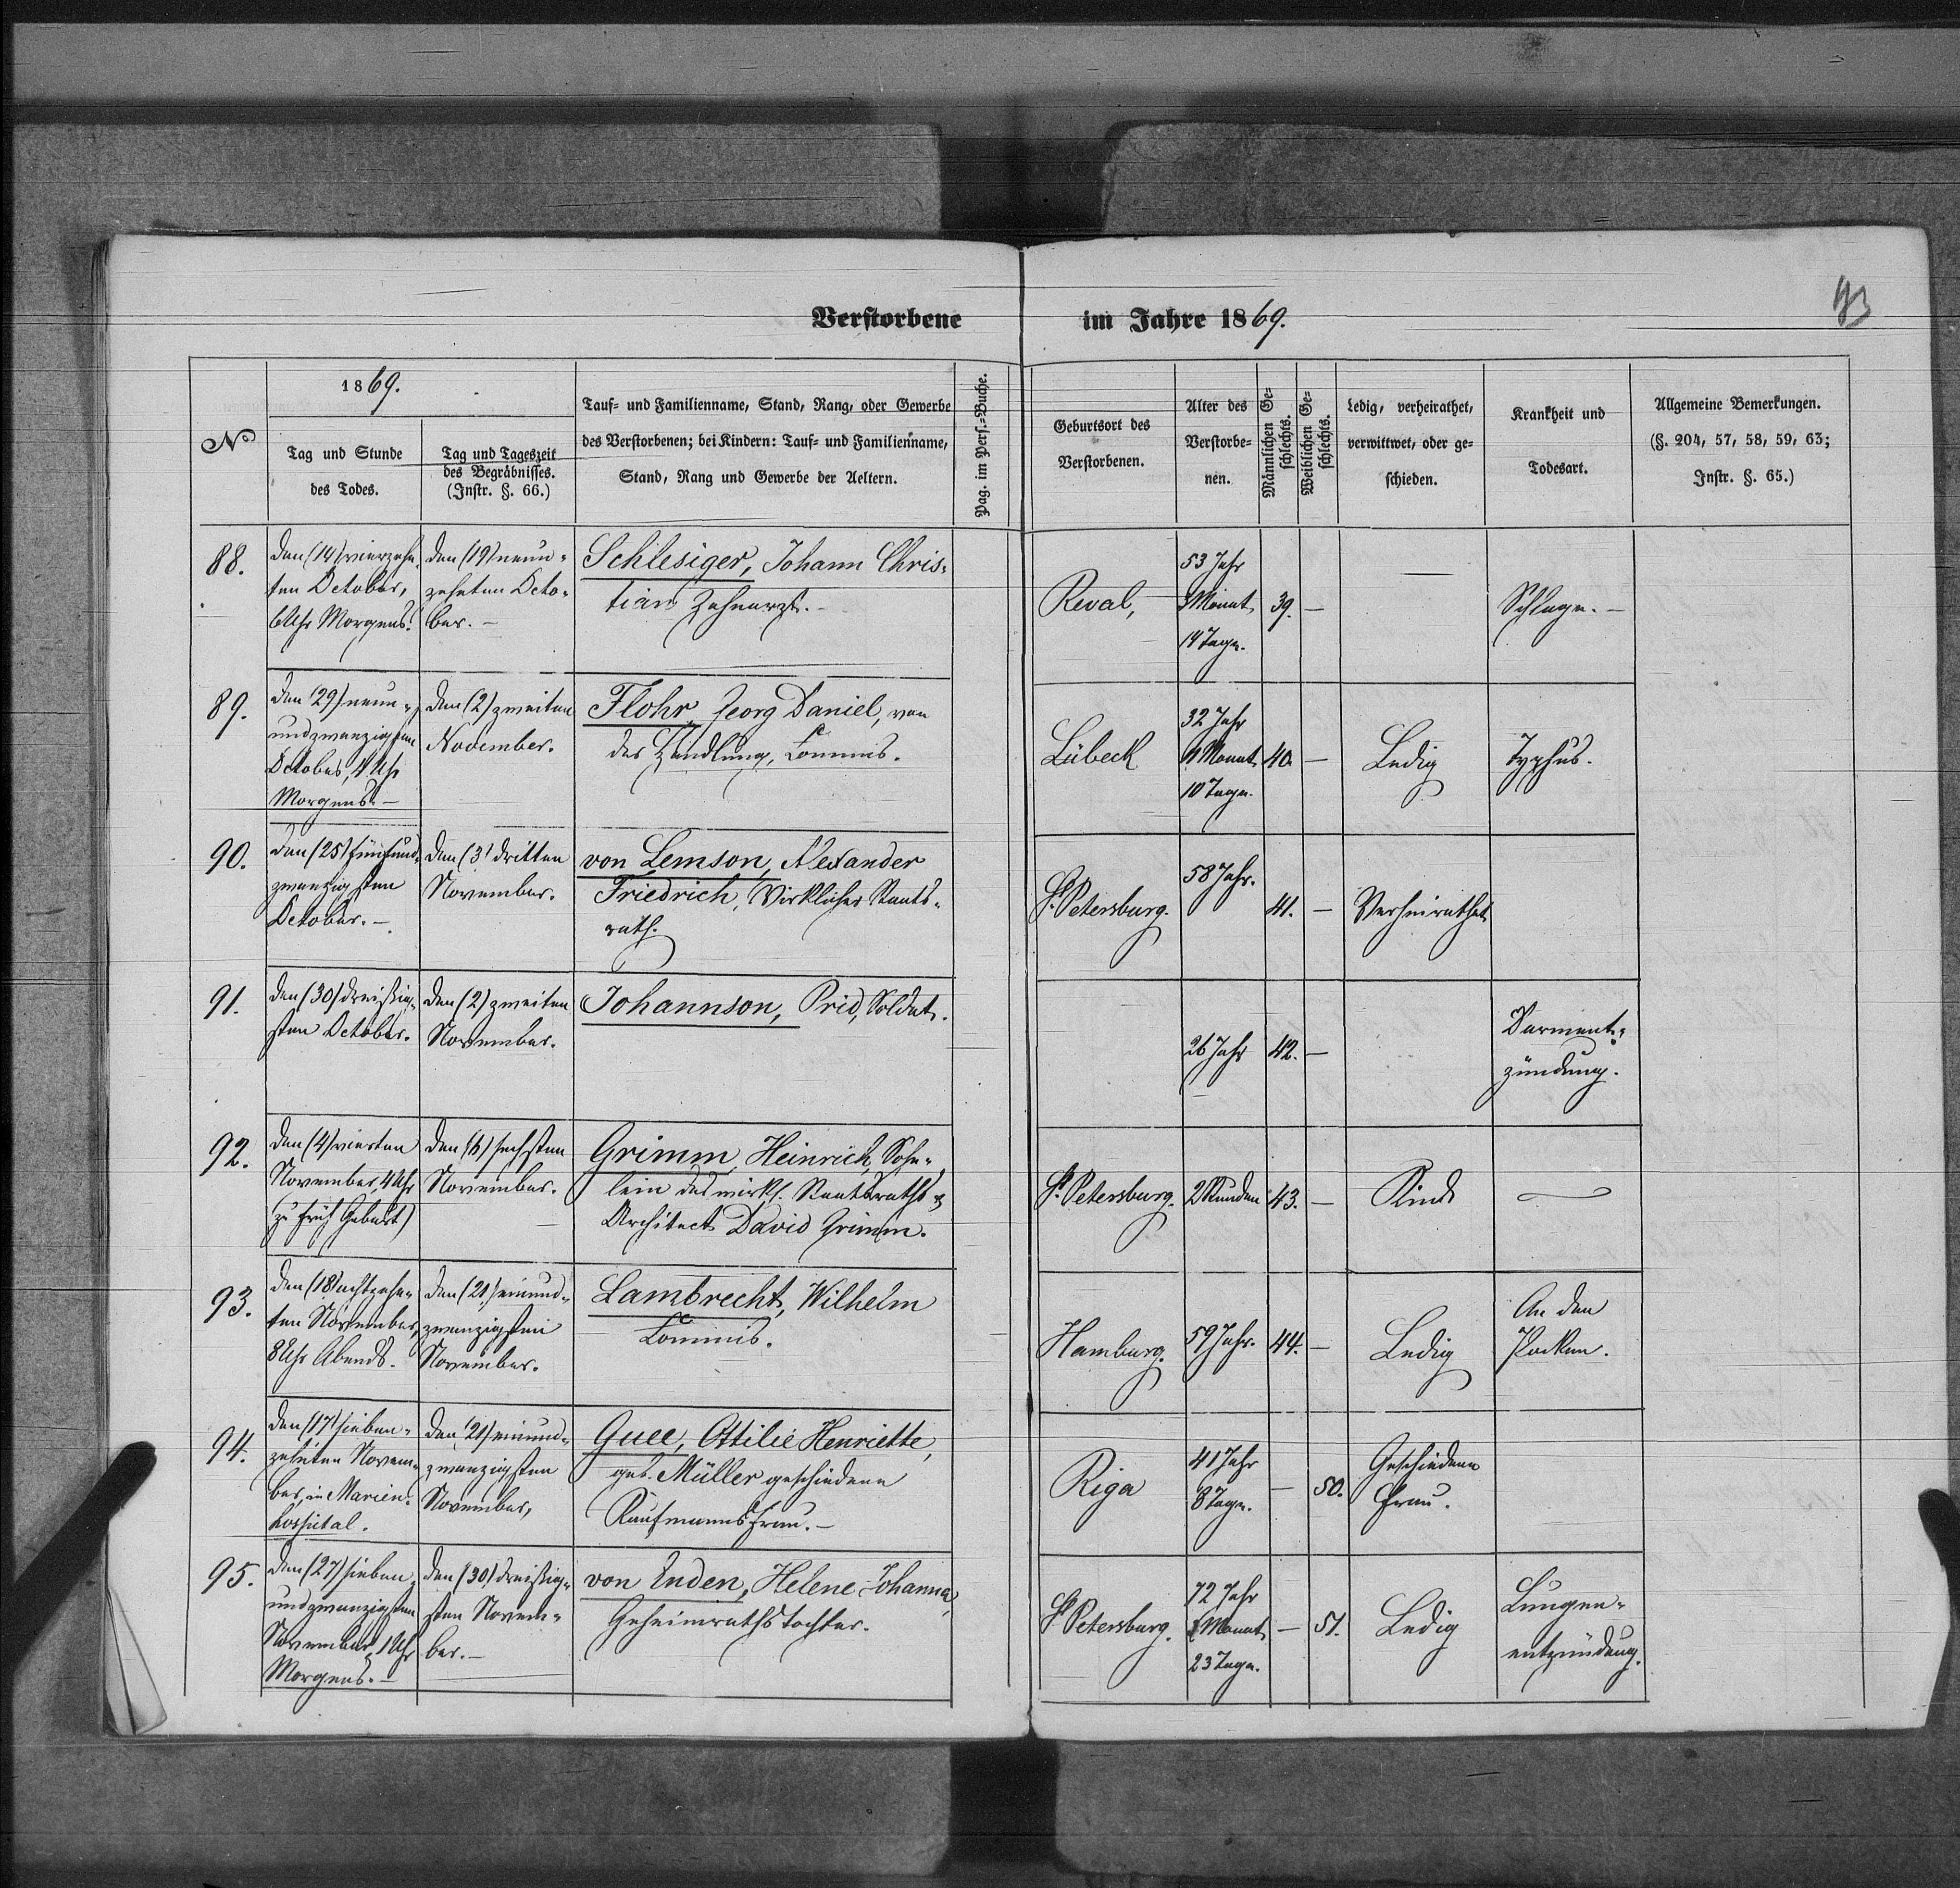 Verstorbene im Jahre 1869.
93
No
1869.
Tag und Stunde
des Todes.
Tag und Tageszeit
des Begräbnisses.
(Instr. §. 66.)
Tauf- und Familienname, Stand, Rang, oder Gewerbe
des Verstorbenen; bei Kindern: Tauf- und Familienname,
Stand, Rang und Gewerbe der Aeltern.
Pag. im Pers.-Buche.
Geburtsort des
Verstorbenen.
Alter des
Verstorbe-
nen.
Männlichen Ge-
schlechts.
Weiblichen Ge-
schlechts.
Ledig, verheirathet,
verwittwet, oder ge-
schieden.
Krankheit und
Todesart.
Allgemeine Bemerkungen.
(§. 204, 57, 58, 59, 63;
Instr. §. 65.)
88.
den (14) vierzehn-
ten October,
6 Uhr Morgens.
den (19) neun-
zehnten Octo-
ber. –
Schlesiger, Johann Chris-
tian Zahnarzt. –
Reval,
53 Jahr
Monat
14 Tage.
39.
–
—
Schlage. –
89.
den (29) neun-
undzwanzigsten
October, 4 Uhr
Morgens. –
den (2) zweiten
November.
Flohr, Georg Daniel, von
der Handlung, Commis.
Lübeck
32 Jahr
Monat
10 Tage.
40.
–
Ledig
Typhus.
90.
den (25) fünfund-
zwanzigsten
October. –
den (3) dritten
November.
von Lemson, Alexander
Friedrich, Wirklicher Staats-
rath.
St. Petersburg.
58 Jahr.
41.
–
Verheirathet
91.
den (30) dreißig-
sten October.
den (2) zweiten
November.
Johannson, Prid, Soldat.
26 Jahr
42.
–
Darment-
zündung.
92.
den (4) vierten
November, 4 Uhr
(zu früh Geburt)
den (6) sechsten
November.
Grimm, Heinrich, Söhn-
lein des wirkl. Staatsraths &
Architect David Grimm.
St. Petersburg.
2 Stunden
43.
–
Kind
—
93.
den (18) achtzehn-
ten November,
8 Uhr Abends.
den (21) einund-
zwanzigsten
November.
Lambrecht, Wilhelm
Commis.
Hamburg.
59 Jahr.
44.
–
Ledig
An den
Pocken.
94.
den (17) sieben-
zehnten Novem-
ber, in Marien-
hospital.
den (21) einund-
zwanzigsten
November,
Guee, Ottilie Henriette,
geb. Müller geschiedene
Kaufmannsfrau. –
Riga
41 Jahr
8 Tage.
–
50.
Geschiedene
Frau.
95.
den (27) sieben-
undzwanzigsten
November, 1 Uhr
Morgens. –
den (30) dreißig-
sten Novem-
ber. –
von Enden, Helene Johanna,
Geheimrathstochter.
St. Petersburg.
72 Jahr
Monat
23 Tage.
–
51.
Ledig
Lungen-
entzündung.